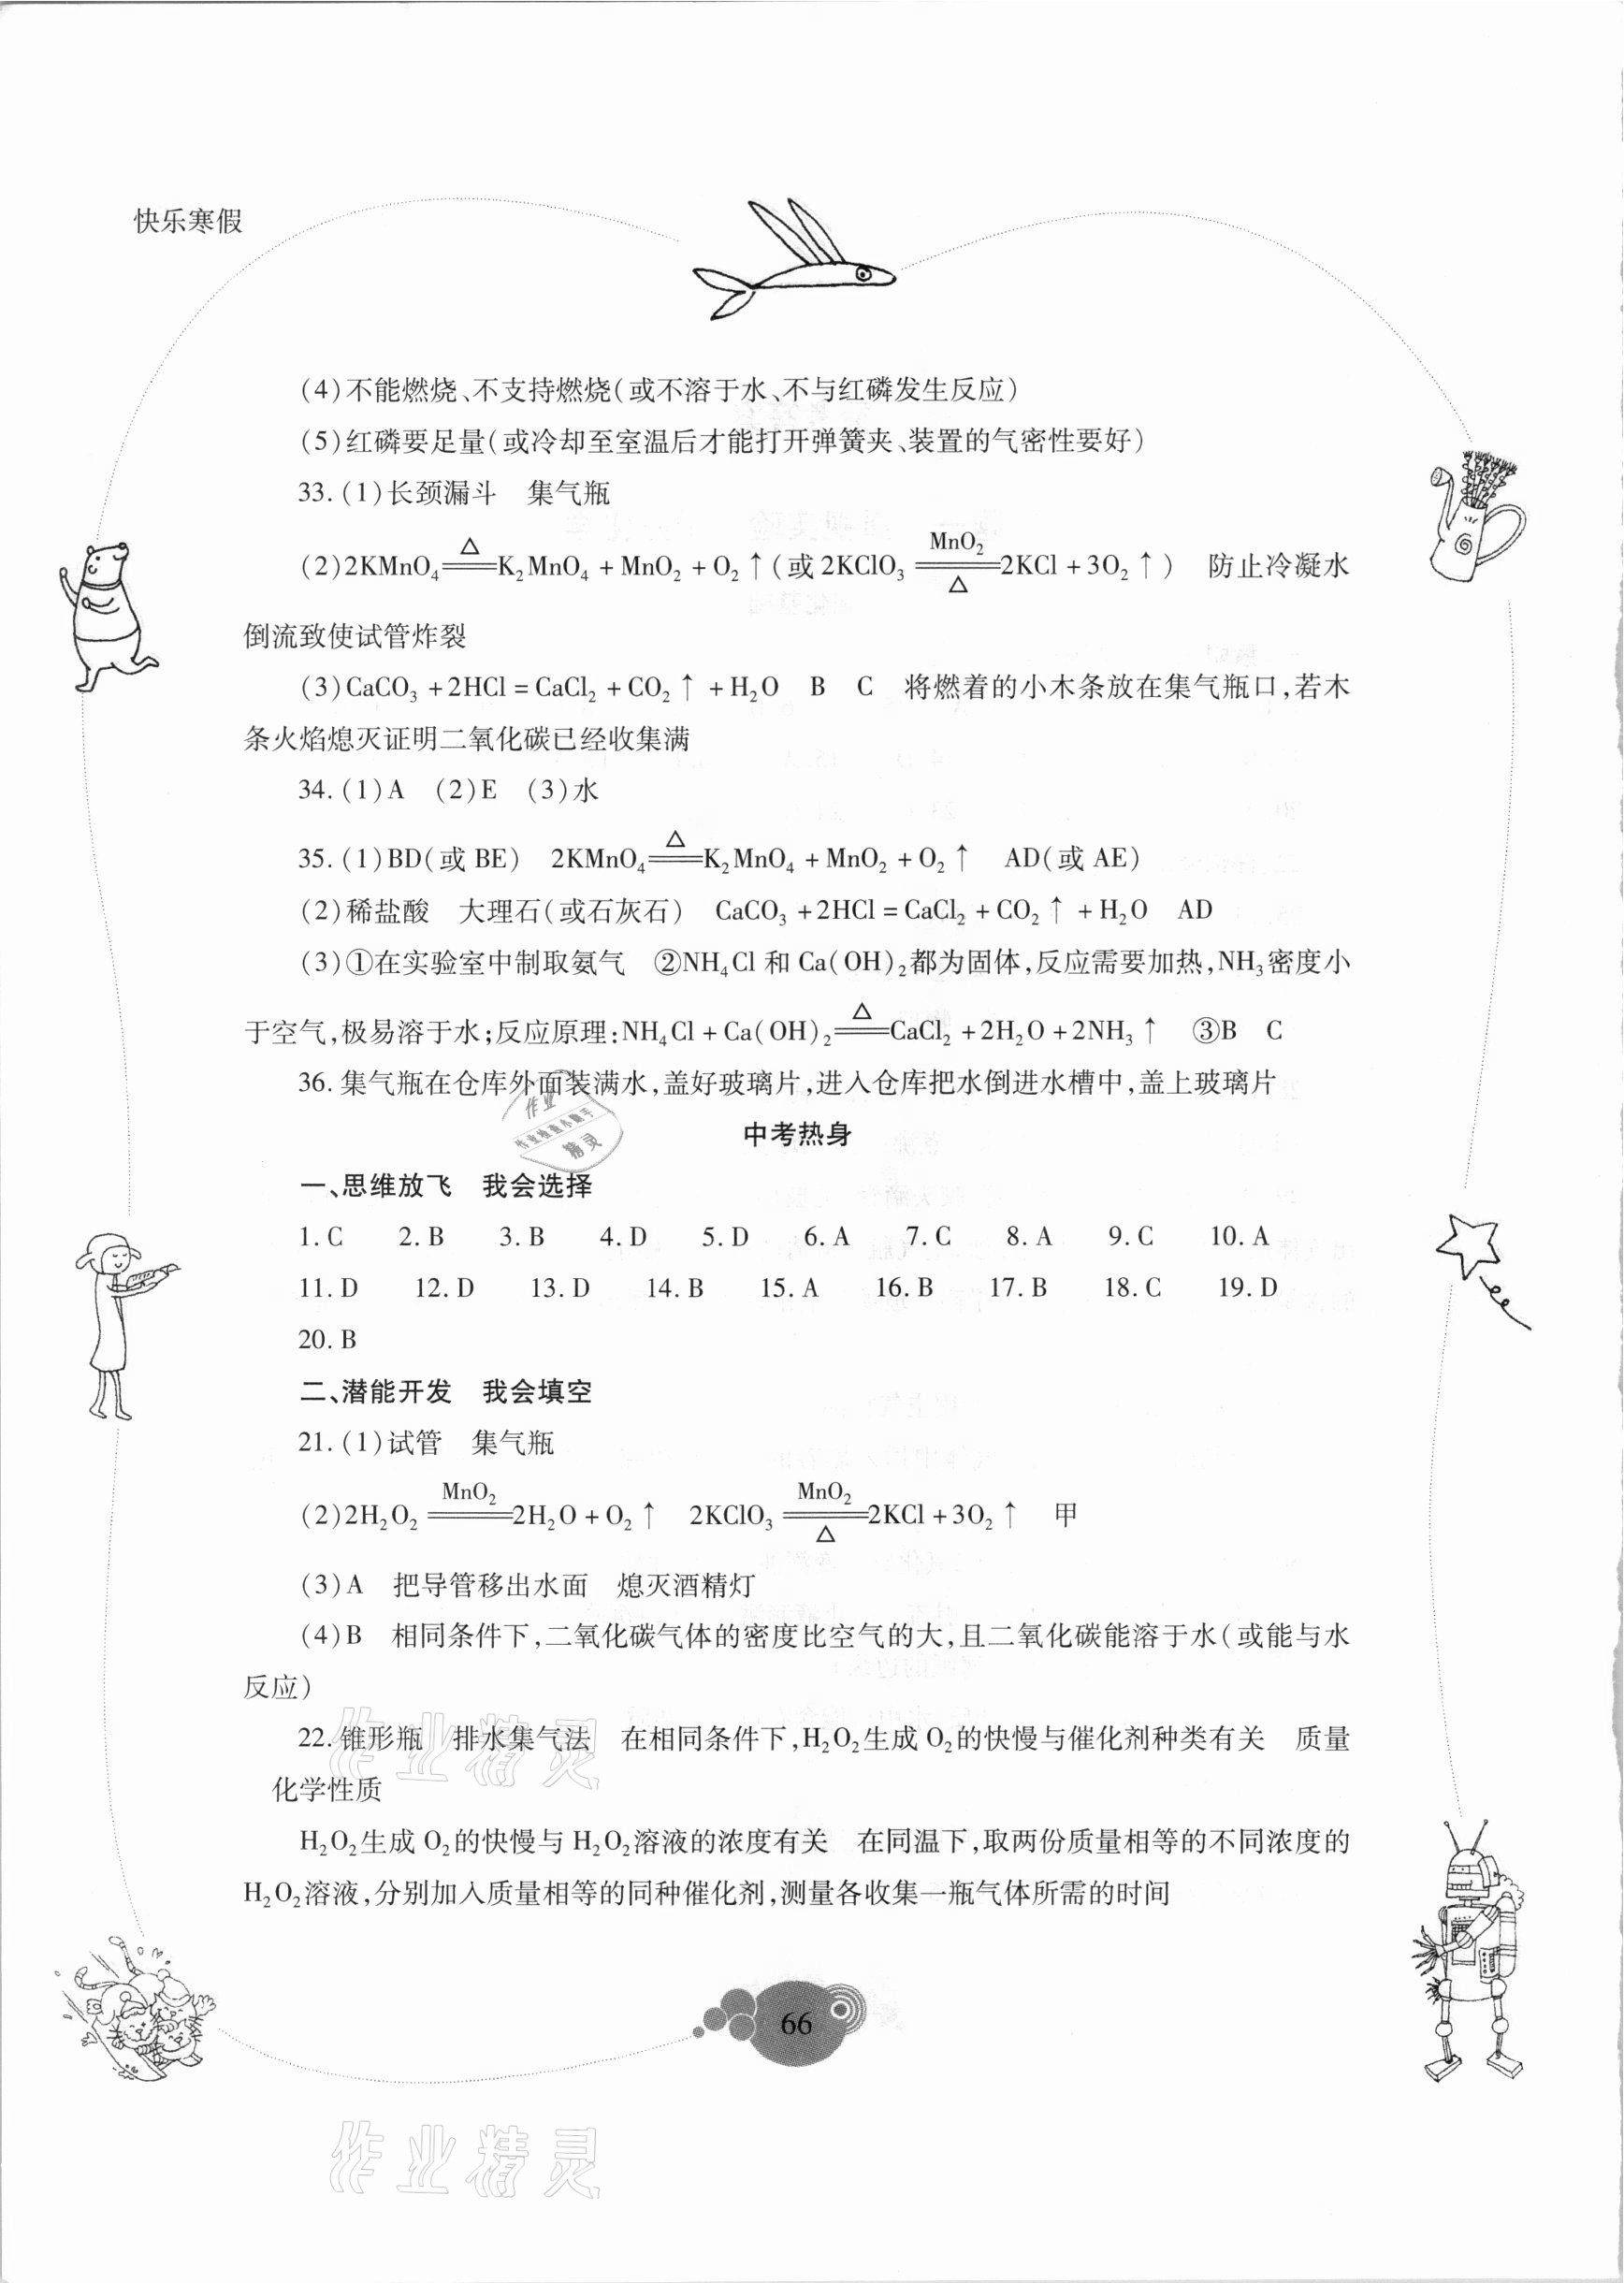 快乐寒假
(4)不能燃烧、不支持燃烧(或不溶于水、不与红磷发生反应)
(5)红磷要足量(或冷却至室温后才能打开弹簧夹、装置的气密性要好)
33.(1)长颈漏斗 集气瓶
(2)2KMnO₄ ≜ K₂MnO₄ + MnO₂ + O₂↑(或 2KClO₃ =MnO₂/△= 2KCl + 3O₂↑) 防止冷凝水
倒流致使试管炸裂
(3)CaCO₃ + 2HCl = CaCl₂ + CO₂↑ + H₂O B C 将燃着的小木条放在集气瓶口,若木
条火焰熄灭证明二氧化碳已经收集满
34.(1)A (2)E (3)水
35.(1)BD(或 BE) 2KMnO₄ ≜ K₂MnO₄ + MnO₂ + O₂↑ AD(或 AE)
(2)稀盐酸 大理石(或石灰石) CaCO₃ + 2HCl = CaCl₂ + CO₂↑ + H₂O AD
(3)①在实验室中制取氨气 ②NH₄Cl 和 Ca(OH)₂都为固体,反应需要加热,NH₃密度小
于空气,极易溶于水;反应原理:NH₄Cl + Ca(OH)₂ ≜ CaCl₂ + 2H₂O + 2NH₃↑ ③B C
36. 集气瓶在仓库外面装满水,盖好玻璃片,进入仓库把水倒进水槽中,盖上玻璃片
中考热身
一、思维放飞 我会选择
1. C 2. B 3. B 4. D 5. D 6. A 7. C 8. A 9. C 10. A
11. D 12. D 13. D 14. B 15. A 16. B 17. B 18. C 19. D
20. B
二、潜能开发 我会填空
21.(1)试管 集气瓶
(2)2H₂O₂ =MnO₂= 2H₂O + O₂↑ 2KClO₃ =MnO₂/△= 2KCl + 3O₂↑ 甲
(3)A 把导管移出水面 熄灭酒精灯
(4)B 相同条件下,二氧化碳气体的密度比空气的大,且二氧化碳能溶于水(或能与水
反应)
22. 锥形瓶 排水集气法 在相同条件下,H₂O₂生成 O₂的快慢与催化剂种类有关 质量
化学性质
H₂O₂生成 O₂的快慢与 H₂O₂溶液的浓度有关 在同温下,取两份质量相等的不同浓度的
H₂O₂溶液,分别加入质量相等的同种催化剂,测量各收集一瓶气体所需的时间
66
作业精灵
作业精灵
作业
作业检查小助手
精灵